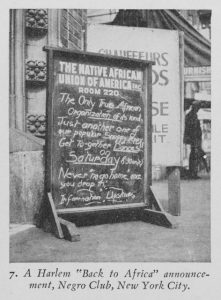 CHAUFFEURS
THE NATIVE AFRICAN
UNION OF AMERICA INC
ROOM 220.
The Only True African
Organization of its kind
Just another one of
our popular
Get-to-gether Dances
on
Saturday
Never no go home once
you drop in.
Information
7. A Harlem "Back to Africa" announce-
ment, Negro Club, New York City.